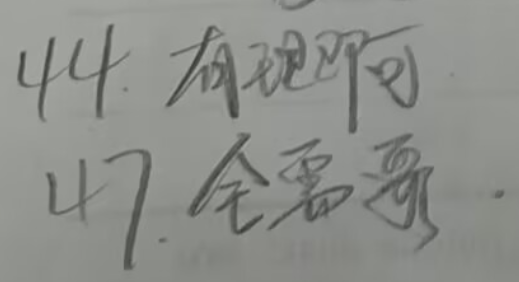 44. 有现即可
47. 全需要.